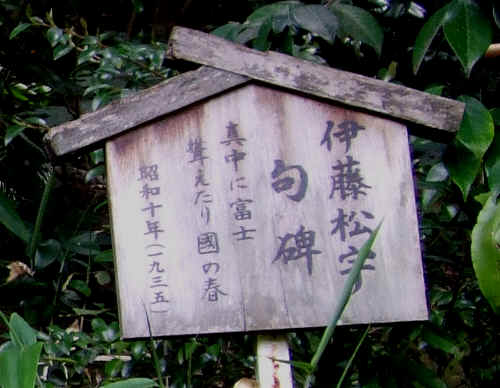 伊藤松宇
句碑
真中に富士
聳えたり國の春
昭和十年(一九三五)